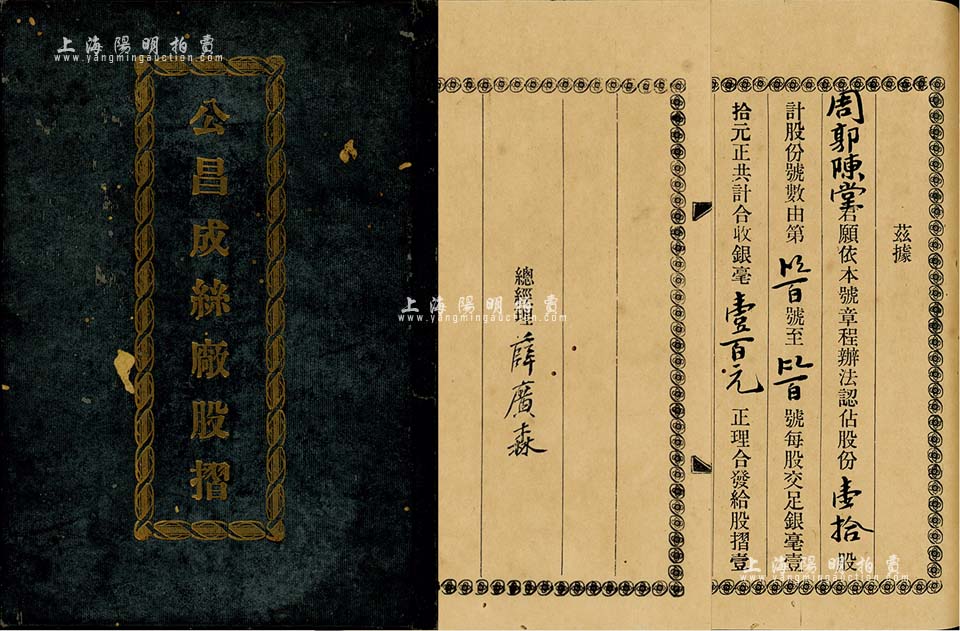 上海陽明拍賣
www.yangmingauction.com
公昌成絲廠股摺
茲據
周郭陳堂君願依本號章程辦法認佔股份壹拾股
計股份號數由第號至號每股交足銀毫壹
拾元正共計合收銀毫壹百元正理合發給股摺壹
總經理薛廣森
上海陽明拍賣
www.yangmingauction.com
上海陽明拍賣
www.yangmingauction.com